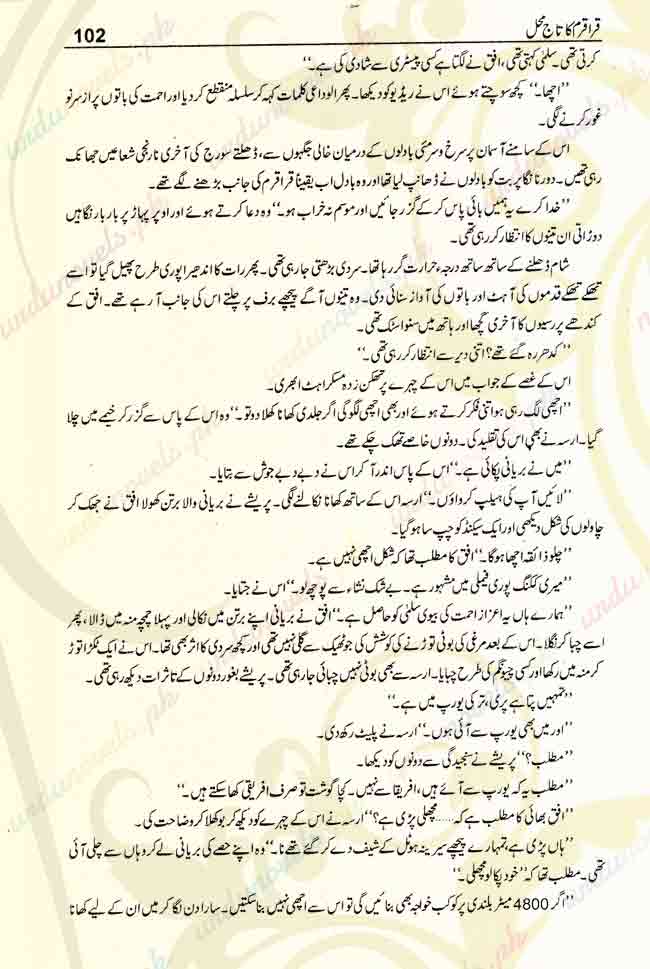 قراقرم کا تاج محل
102
کرتی تھی۔ سلمٰی کہتی تھی، افق نے لگتا ہے کسی پیسٹری سے شادی کی ہے۔“
”اچھا۔“ کچھ سوچتے ہوئے اس نے ریڈیو کو دیکھا۔ پھر الوداعی کلمات کہہ کر سلسلہ منقطع کر دیا اور احمت کی باتوں پر از سر نو
غور کرنے لگی۔
اس کے سامنے آسمان پر سرخ و سرمئی بادلوں کے درمیان خالی جگہوں سے، ڈھلتے سورج کی آخری نارنجی شعاعیں جھانک
رہی تھیں۔ دور نانگا پربت کو بادلوں نے ڈھانپ لیا تھا اور وہ بادل اب یقیناً قراقرم کی جانب بڑھنے لگے تھے۔
”خدا کرے یہ ہمیں بائی پاس کر کے گزر جائیں اور موسم نہ خراب ہو۔“ وہ دعا کرتے ہوئے اور اوپر پہاڑ پر بار بار نگاہیں
دوڑاتی ان تینوں کا انتظار کر رہی تھی۔
شام ڈھلنے کے ساتھ ساتھ درجہ حرارت گر رہا تھا۔ سردی بڑھتی جا رہی تھی۔ پھر رات کا اندھیرا پوری طرح پھیل گیا تو اسے
تھکے تھکے قدموں کی آہٹ اور باتوں کی آواز سنائی دی۔ وہ تینوں آگے پیچھے برف پر چلتے اس کی جانب آ رہے تھے۔ افق کے
کندھے پر رسیوں کا آخری گچھا اور ہاتھ میں سنو اسٹک تھی۔
”کدھر رہ گئے تھے؟ اتنی دیر سے انتظار کر رہی تھی۔“
اس کے غصے کے جواب میں اس کے چہرے پر تھکن زدہ مسکراہٹ ابھری۔
”اچھی لگ رہی ہو اتنی فکر کرتے ہوئے اور بھی اچھی لگو گی اگر جلدی کھانا کھلا دو تو۔“ وہ اس کے پاس سے گزر کر خیمے میں چلا
گیا۔ ارسہ نے بھی اس کی تقلید کی۔ دونوں خاصے تھک چکے تھے۔
”میں نے بریانی پکائی ہے۔“ اس کے پاس اندر آ کر اس نے دبے دبے جوش سے بتایا۔
”لائیں آپ کی ہیلپ کرواؤں۔“ ارسہ اس کے ساتھ کھانا نکالنے لگی۔ پریشے نے بریانی والا برتن کھولا افق نے جھک کر
چاولوں کی شکل دیکھی اور ایک سیکنڈ کو چپ سا ہو گیا۔
”چلو ذائقہ اچھا ہو گا۔“ افق کا مطلب تھا کہ شکل اچھی نہیں ہے۔
”میری ککنگ پوری فیملی میں مشہور ہے۔ بے شک نشاء سے پوچھ لو۔“ اس نے جتایا۔
”ہمارے ہاں یہ اعزاز احمت کی بیوی سلمٰی کو حاصل ہے۔“ افق نے بریانی اپنے برتن میں نکالی اور پہلا چمچہ منہ میں ڈالا، پھر
اسے چبا کر نگلا۔ اس کے بعد مرغی کی بوٹی توڑنے کی کوشش کی جو ٹھیک سے گلی نہیں تھی اور کچھ سردی کا اثر بھی تھا۔ اس نے ایک ٹکڑا توڑ
کر منہ میں رکھا اور کسی چیونگم کی طرح چبایا۔ ارسہ سے بھی بوٹی نہیں چبائی جا رہی تھی۔ پریشے بغور دونوں کے تاثرات دیکھ رہی تھی۔
”تمہیں پتا ہے پری، ترکی یورپ میں ہے۔“
”اور میں بھی یورپ سے آئی ہوں۔“ ارسہ نے پلیٹ رکھ دی۔
”مطلب؟“ پریشے نے سنجیدگی سے دونوں کو دیکھا۔
”مطلب یہ کہ یورپ سے آئے ہیں، افریقا سے نہیں۔ کچا گوشت تو صرف افریقی کھا سکتے ہیں۔“
”افق بھائی کا مطلب ہے کہ..... مچھلی پڑی ہے؟“ ارسہ نے اس کے چہرے کو دیکھ کر بوکھلا کر وضاحت کی۔
”ہاں پڑی ہے، تمہارے پیچھے سیرینہ ہوٹل کے شیف دے کر گئے تھے نا۔“ وہ اپنے حصے کی بریانی لے کر وہاں سے چلی آئی
تھی۔ مطلب تھا کہ ”خود پکا لو مچھلی۔“
”اگر 4800 میٹر بلندی پر کوکب خواجہ بھی بنائیں گی تو اس سے اچھی نہیں بنا سکتیں۔ سارا دن لگا کر میں ان کے لیے کھانا
urdunovels.pk